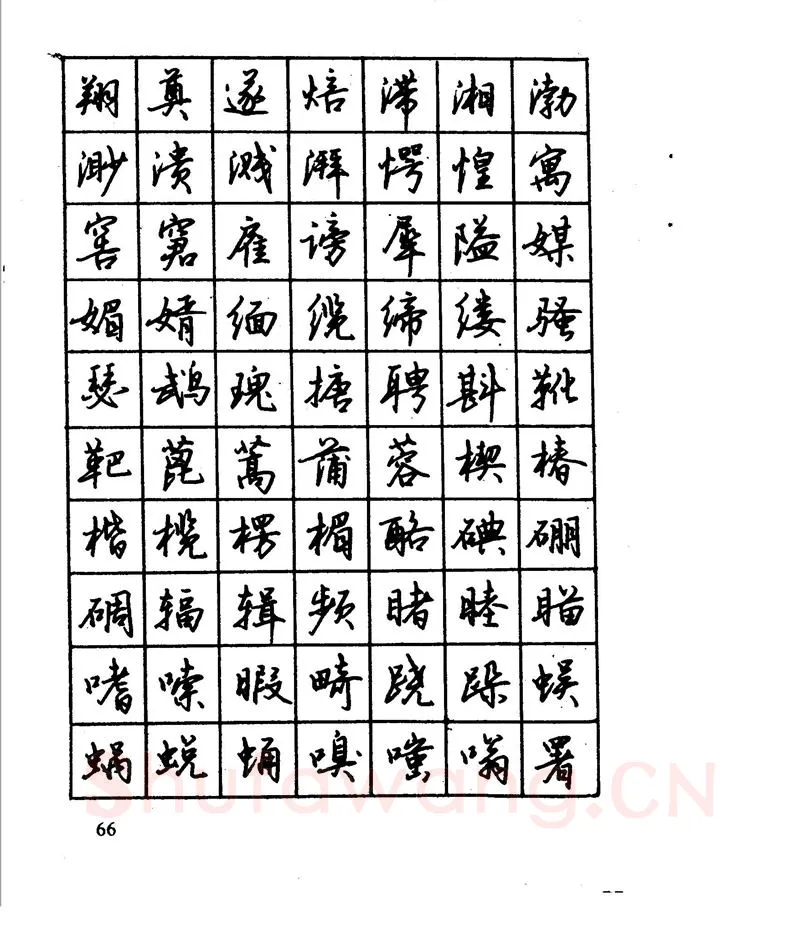 翔 奠 遂 焙 滞 湘 渤
渺 溃 溅 湃 愕 惶 寓
窖 窘 雇 谤 犀 隘 媒
媚 婿 缅 缆 缔 缕 骚
瑟 鹉 瑰 搪 聘 斟 靴
靶 蓖 蒿 蒲 蓉 楔 椿
楷 榄 楞 楣 酪 碘 硼
碉 辐 辑 频 睹 睦 瞄
嗜 嗦 暇 畸 跷 跺 蜈
蜗 蜕 蛹 嗅 嗤 嗡 署
shufawang.CN
66